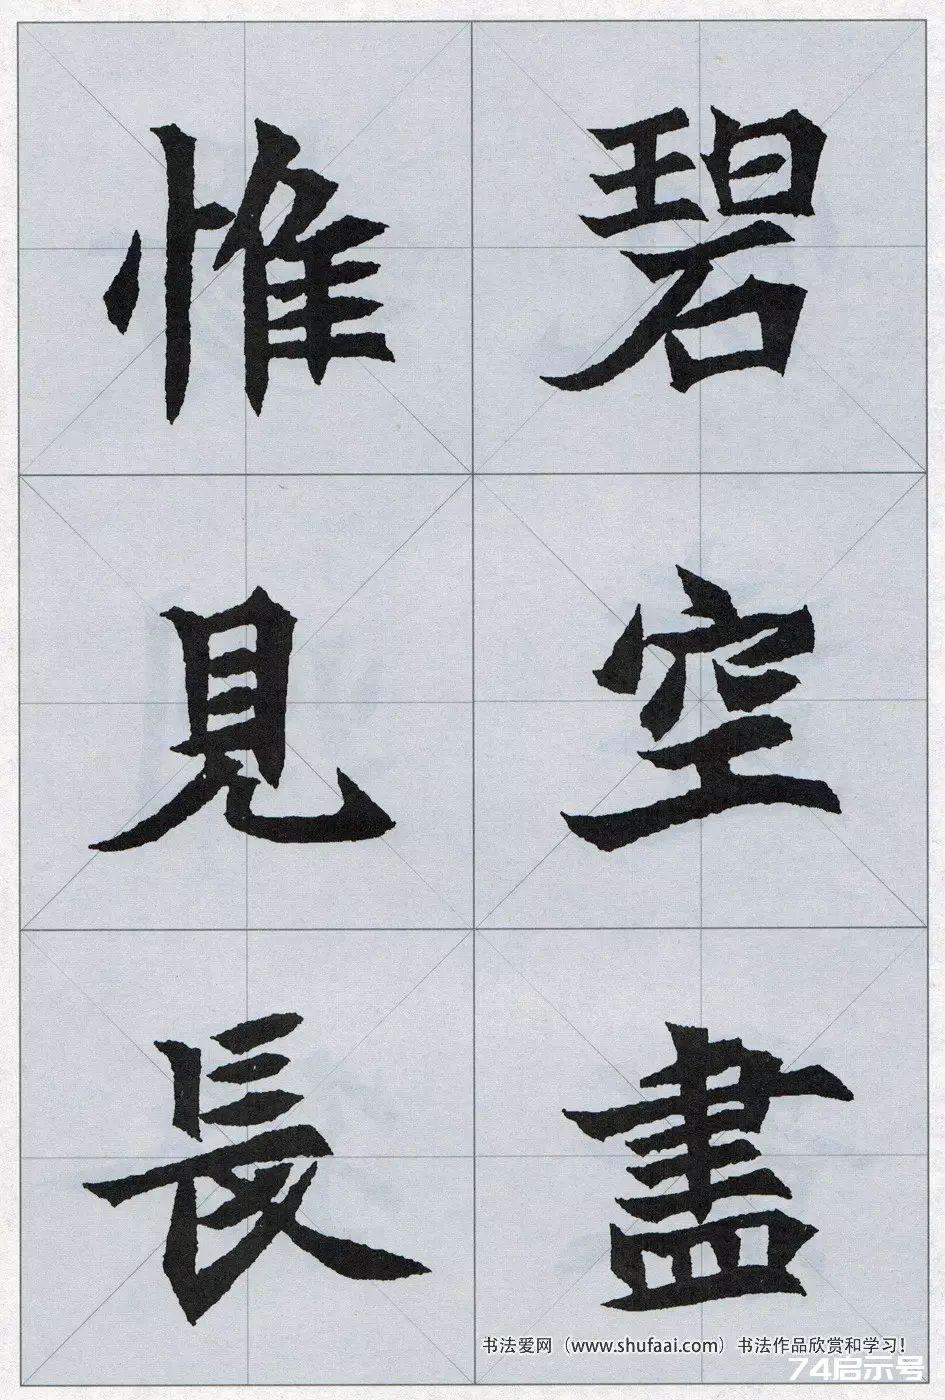 碧空盡
惟見長
书法爱网（www.shufaai.com）书法作品欣赏和学习！
74启示号